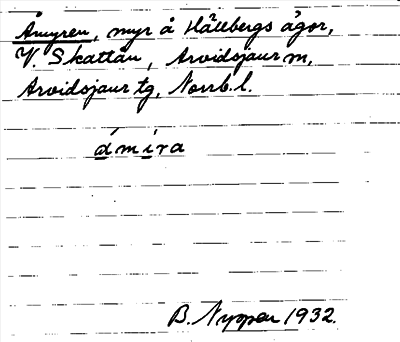 Åmyren, myr å Hällbergs ägor,
V. Skattån, Arvidsjaur m,
Arvidsjaur tg, Norrb. l.
ámira
B. Nyppen 1932.